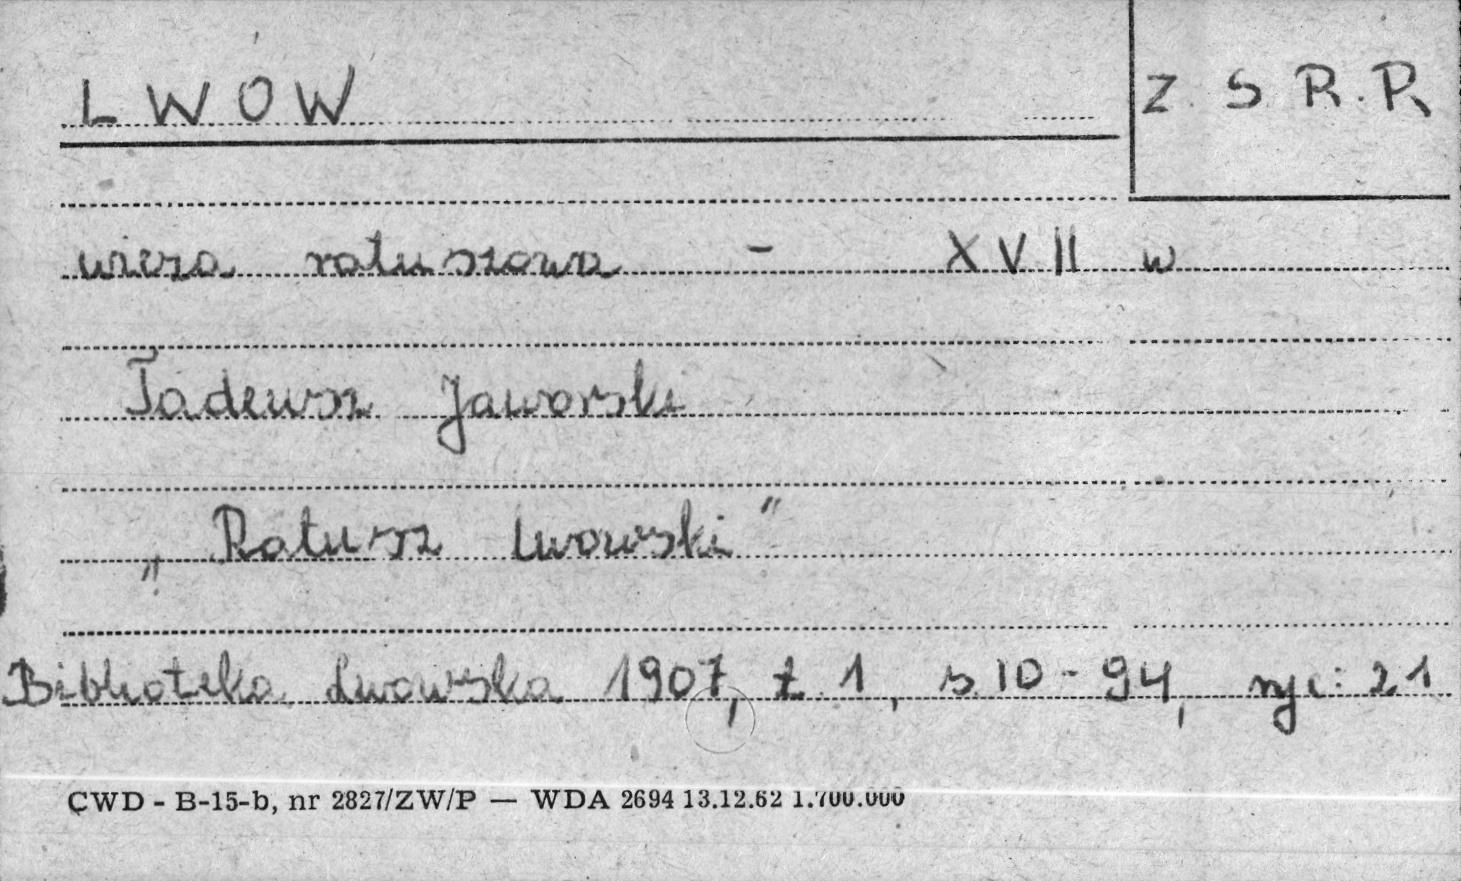 LWÓW
Z S R.R
wieża ratuszowa - XVII w
Tadeusz Jaworski
„Ratusz Lwowski"
Biblioteka Lwowska 1907, t. 1, s. 10-94, ryc: 21
CWD - B-15-b, nr 2827/ZW/P — WDA 2694 13.12.62 1.700.000